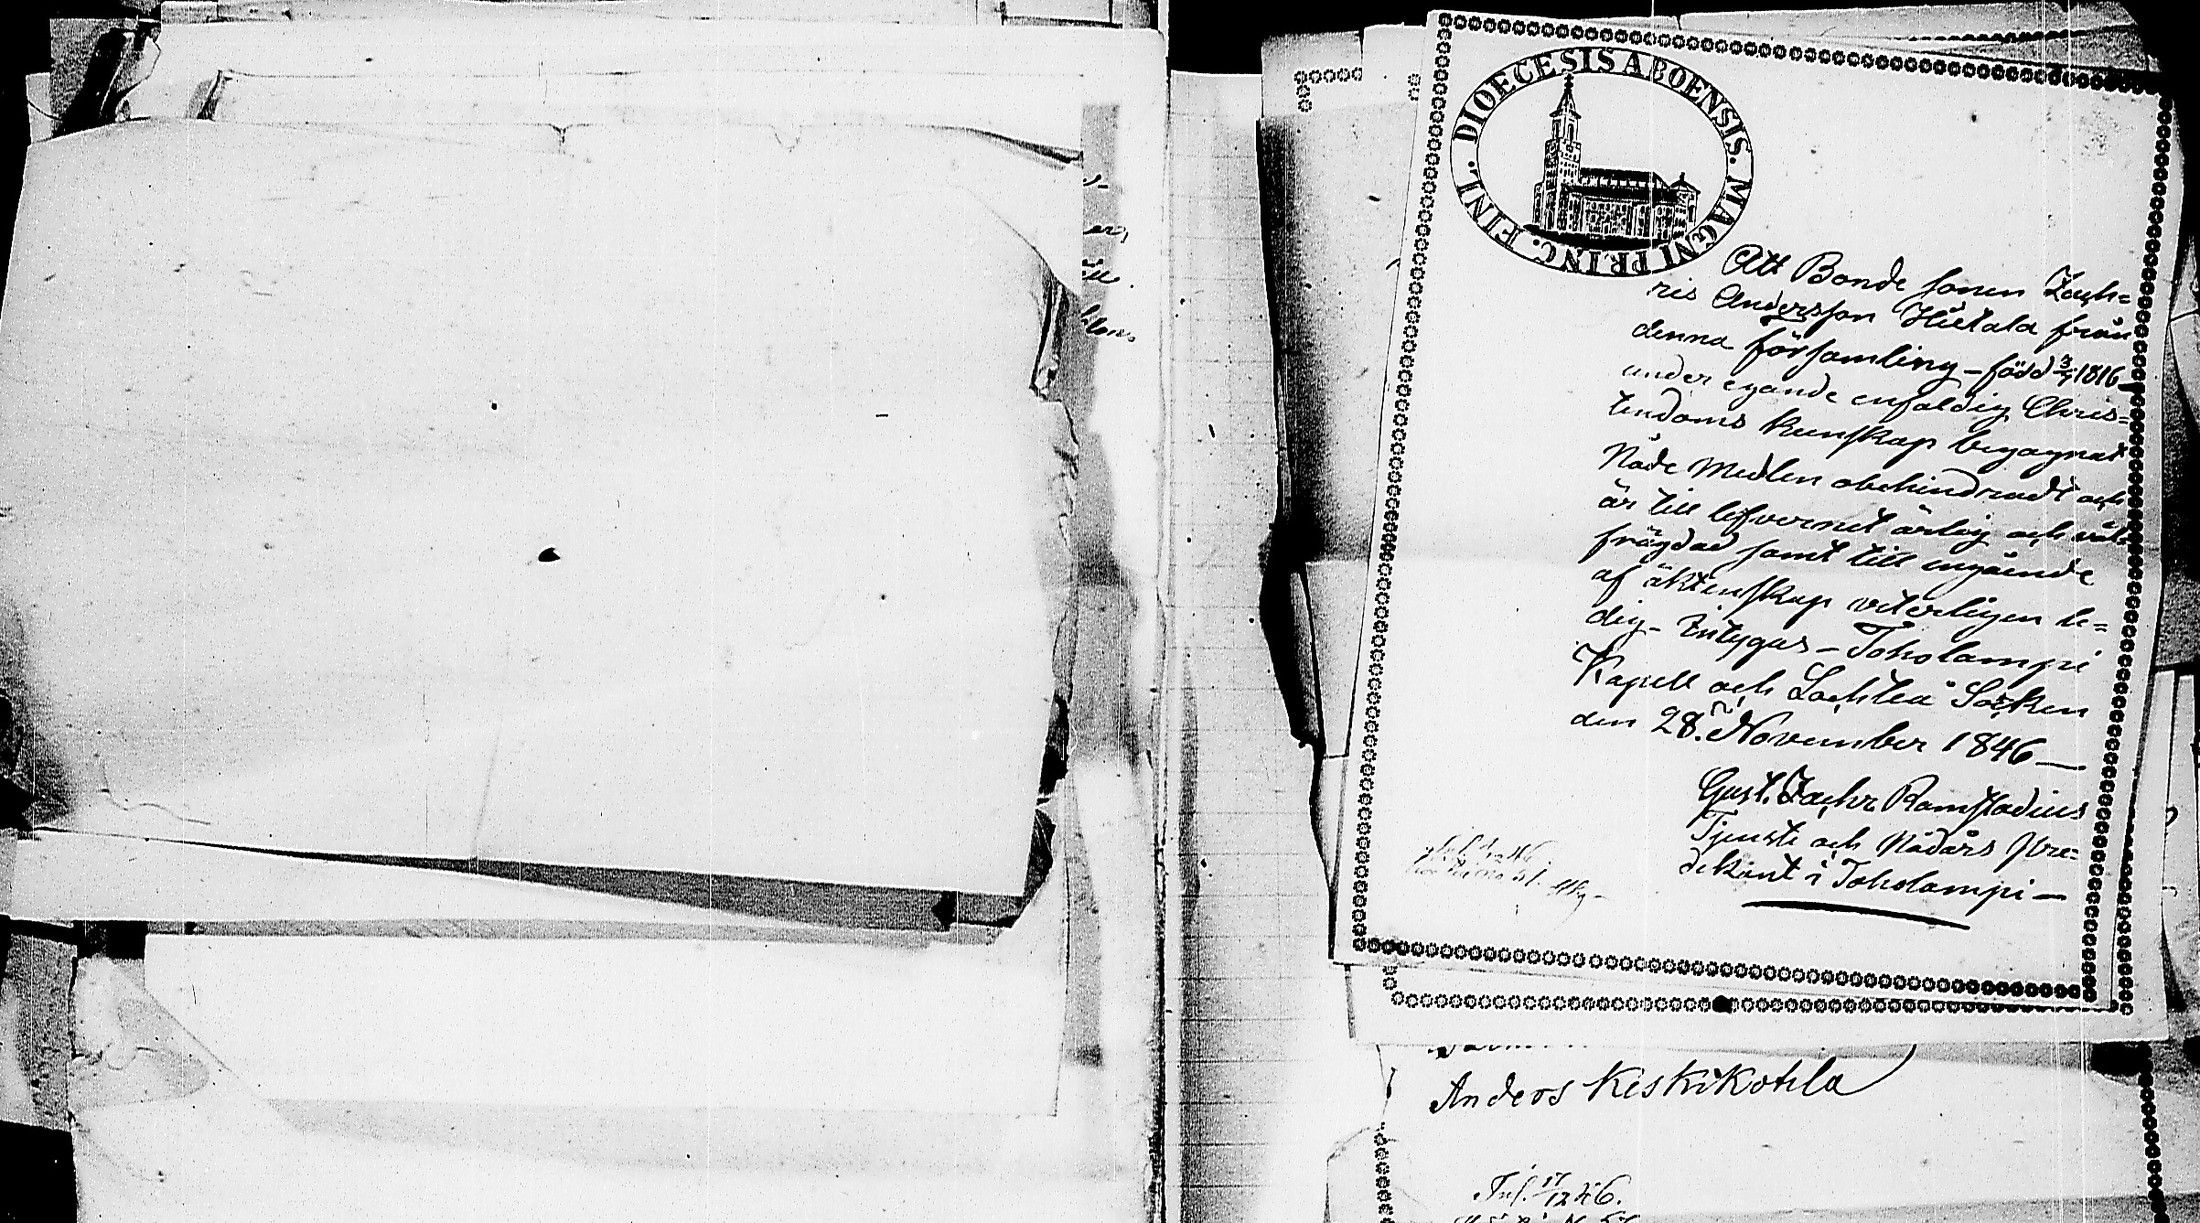 DIOECESIS ABOENSIS. MAGNI PRINC. FINL.
Att Bonde sonen Zach=
ris Andersson Hietala från
denna församling – född 3/7 1816
under egande enfaldig Chris=
tendoms kunskap begagnat
Nåde Medlen obehindradt och
är till lefvernet ärlig och väl
frägdad samt till ingående
af äktenskap veterligen le=
dig – Intygas – Toholampi
Kapell och Lochteå Socken
den 28. November 1846 —
Gust. Zachr Ramstadius
Tjenste och Nådårs Pre=
dikant i Toholampi —
Anders Keskikotila
Inf. 17/12 46.